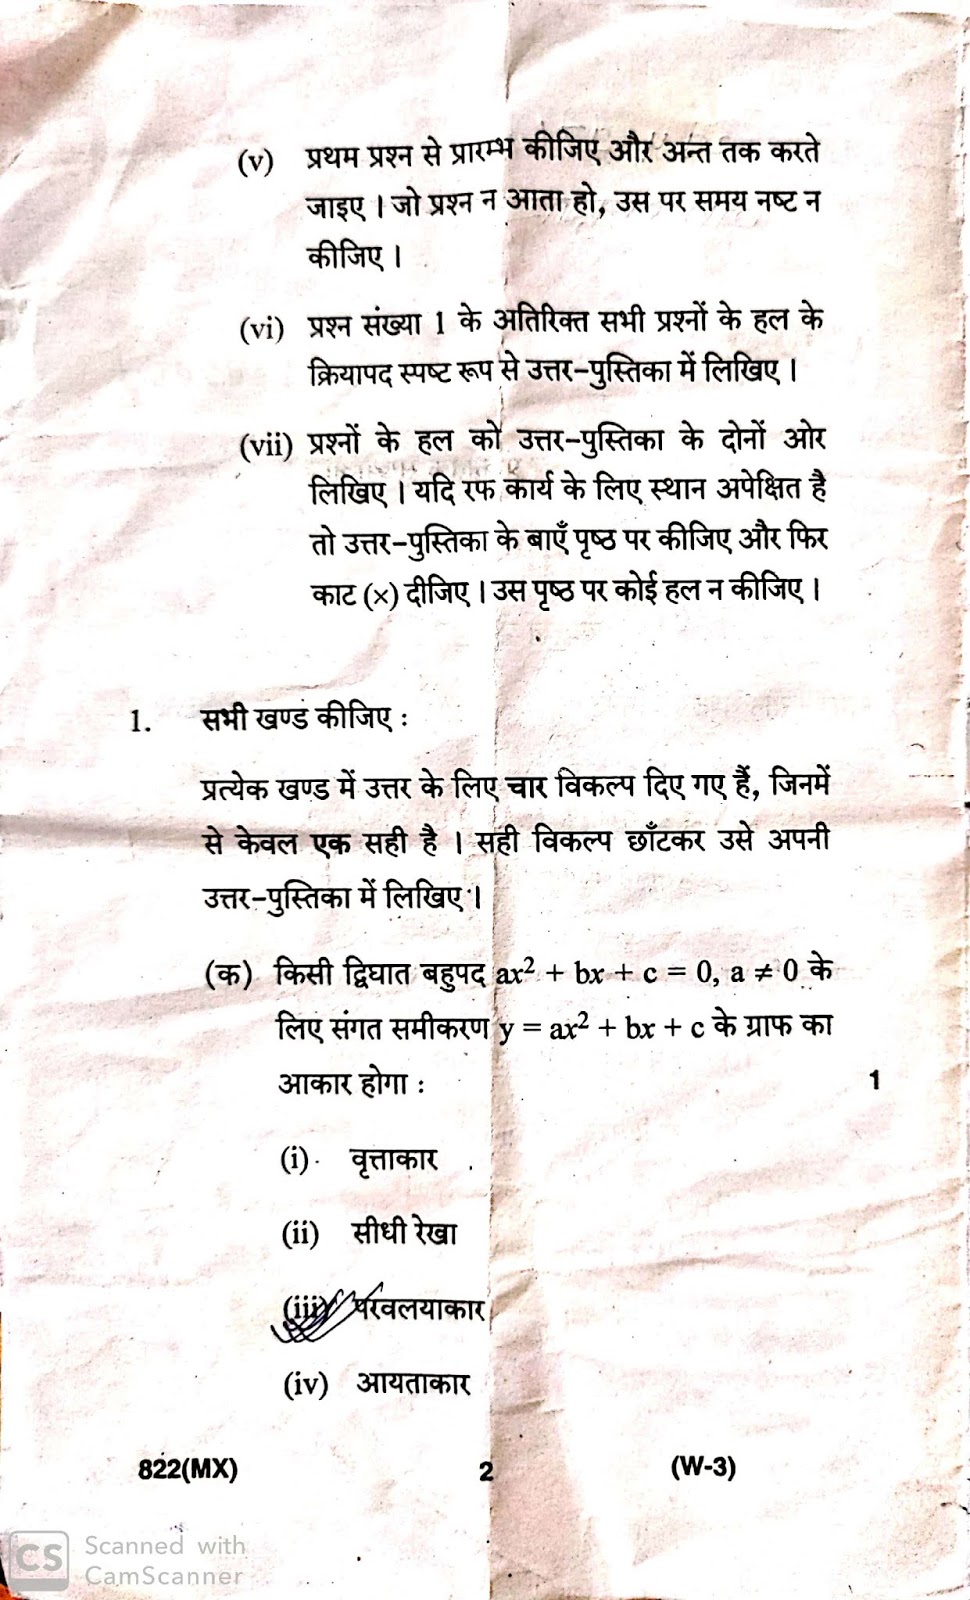 (v) प्रथम प्रश्न से प्रारम्भ कीजिए और अन्त तक करते
जाइए । जो प्रश्न न आता हो, उस पर समय नष्ट न
कीजिए ।
(vi) प्रश्न संख्या 1 के अतिरिक्त सभी प्रश्नों के हल के
क्रियापद स्पष्ट रूप से उत्तर-पुस्तिका में लिखिए ।
(vii) प्रश्नों के हल को उत्तर-पुस्तिका के दोनों ओर
लिखिए । यदि रफ कार्य के लिए स्थान अपेक्षित है
तो उत्तर-पुस्तिका के बाएँ पृष्ठ पर कीजिए और फिर
काट (×) दीजिए । उस पृष्ठ पर कोई हल न कीजिए ।
1. सभी खण्ड कीजिए :
प्रत्येक खण्ड में उत्तर के लिए चार विकल्प दिए गए हैं, जिनमें
से केवल एक सही है । सही विकल्प छाँटकर उसे अपनी
उत्तर-पुस्तिका में लिखिए ।
(क) किसी द्विघात बहुपद ax² + bx + c = 0, a ≠ 0 के
लिए संगत समीकरण y = ax² + bx + c के ग्राफ का
आकार होगा : 1
(i) वृत्ताकार
(ii) सीधी रेखा
(iii) परवलयाकार
(iv) आयताकार
822(MX) 2 (W-3)
CS Scanned with
CamScanner